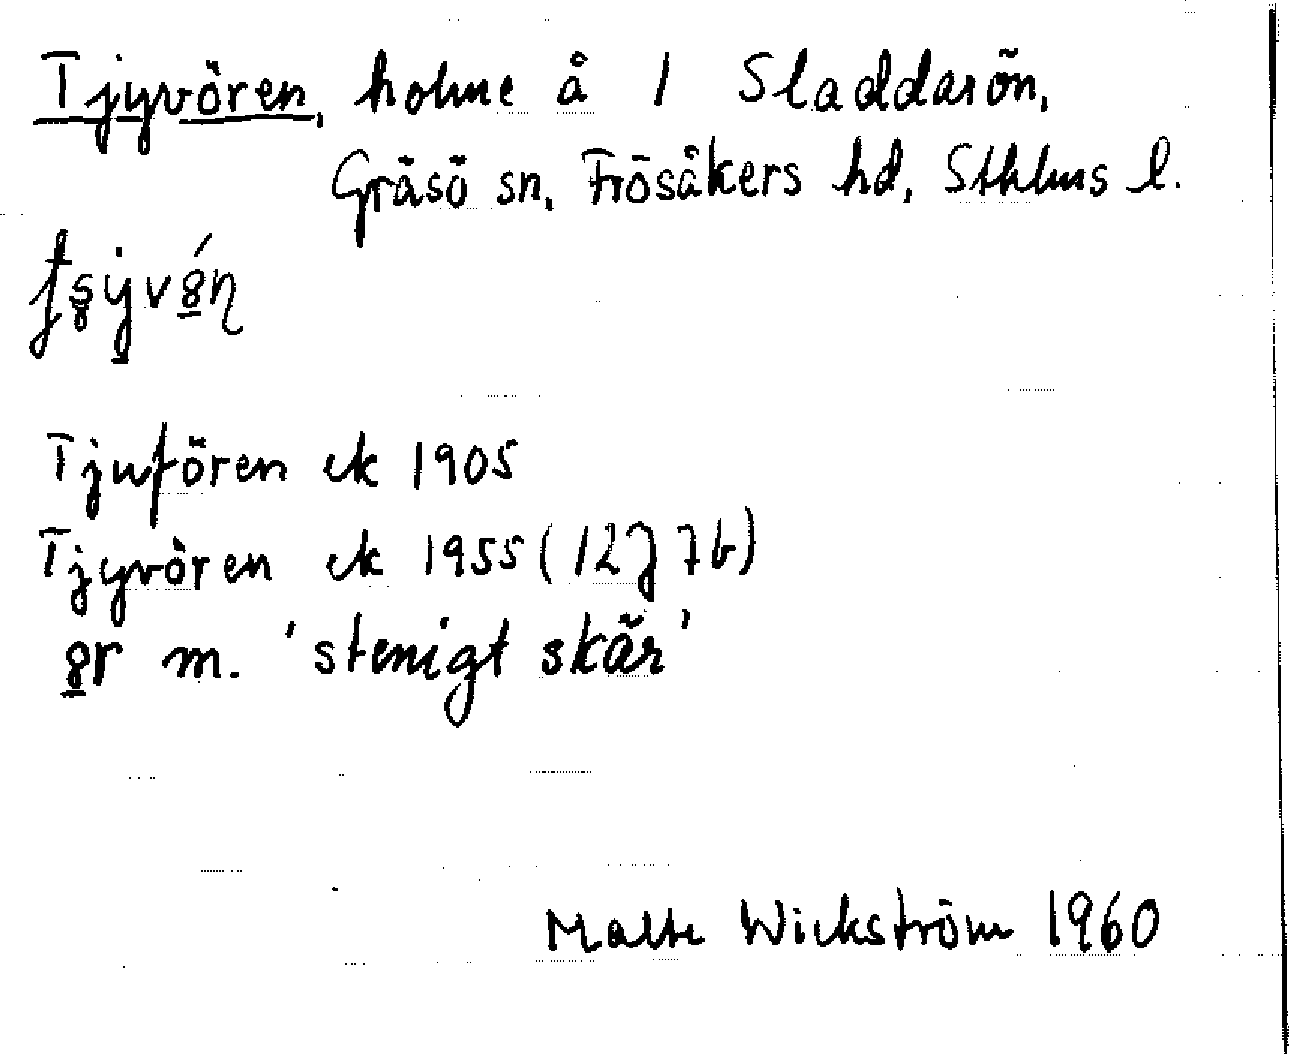 Tjyvören, holme å 1 Sladdarön,
Gräsö sn, Frösåkers hd, Sthlms l.
Tjufören ek 1905
Tjyvören ek 1955 (12J 7b)
m. 'stenigt skär'
Malte Wickström 1960